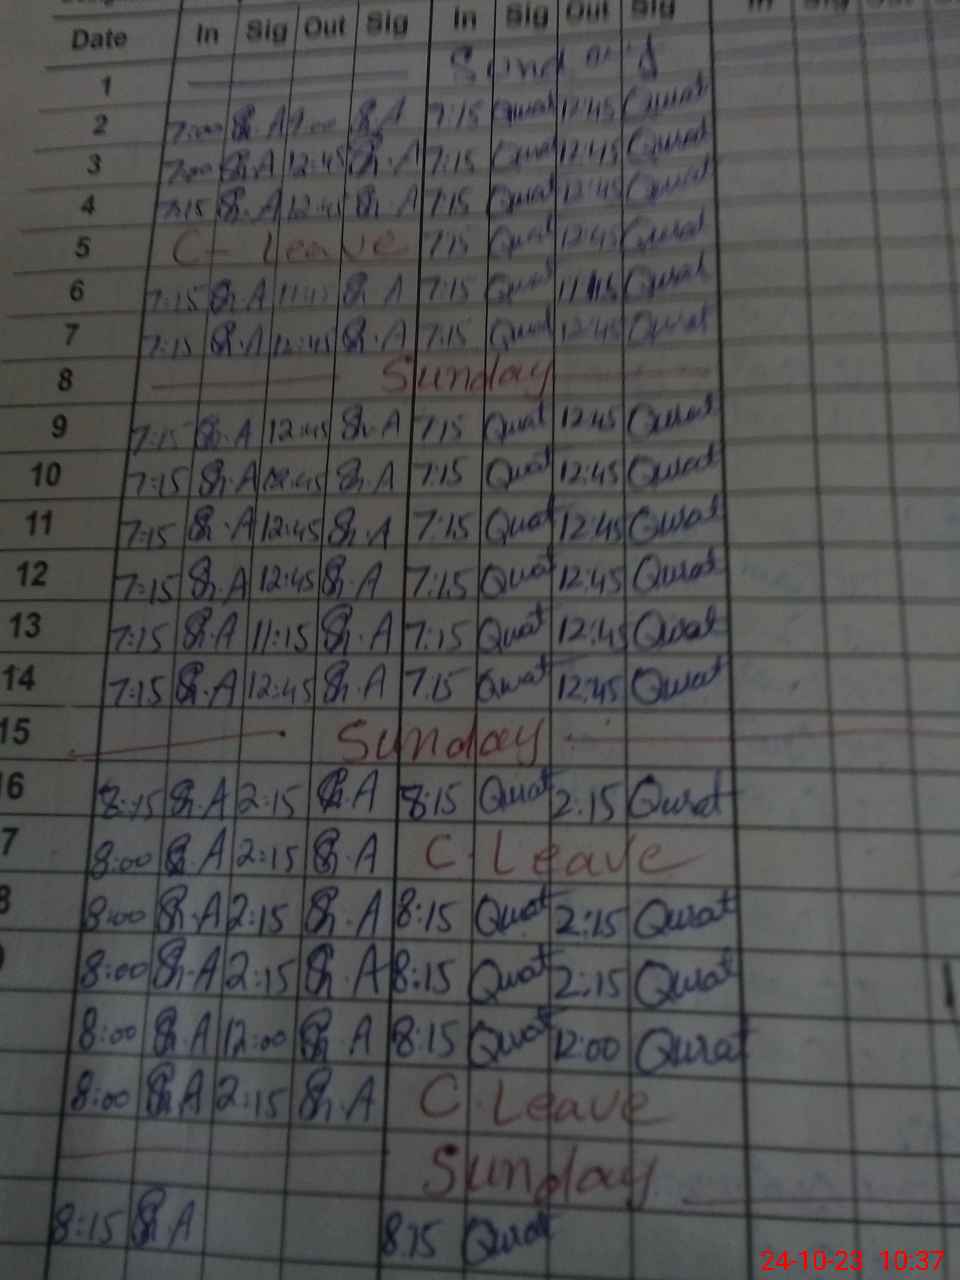 Date In Sig Out Sig In Sig Out Sig In Sig Out
1 Sunday
2 7:00 Sh.A Sh.A 7:15 Qurat 12:45 Qurat
3 7:00 Sh.A 12:45 Sh.A 7:15 Qurat 12:45 Qurat
4 7:15 Sh.A 12:45 Sh.A 7:15 Qurat 12:45 Qurat
5 C- Leave 7:15 Qurat 12:45 Qurat
6 7:15 Sh.A 11:45 Sh.A 7:15 Qurat 11:45 Qurat
7 7:15 Sh.A 12:45 Sh.A 7:15 Qurat 12:45 Qurat
8 Sunday
9 7:15 Sh.A 12:45 Sh.A 7:15 Qurat 12:45 Qurat
10 7:15 Sh.A 12:45 Sh.A 7:15 Qurat 12:45 Qurat
11 7:15 Sh.A 12:45 Sh.A 7:15 Qurat 12:45 Qurat
12 7:15 Sh.A 12:45 Sh.A 7:15 Qurat 12:45 Qurat
13 7:15 Sh.A 11:15 Sh.A 7:15 Qurat 12:45 Qurat
14 7:15 Sh.A 12:45 Sh.A 7:15 Qurat 12:45 Qurat
15 Sunday
6 8:15 Sh.A 2:15 Sh.A 8:15 Qurat 2:15 Qurat
7 8:00 Sh.A 2:15 Sh.A C.Leave
8 8:00 Sh.A 2:15 Sh.A 8:15 Qurat 2:15 Qurat
8:00 Sh.A 2:15 Sh.A 8:15 Qurat 2:15 Qurat
8:00 Sh.A 12:00 Sh.A 8:15 Qurat 12:00 Qurat
8:00 Sh.A 2:15 Sh.A C.Leave
Sunday
8:15 Sh.A 8:15 Qurat
24-10-23 10:37